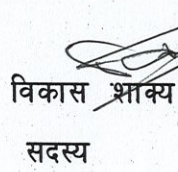 विकास शाक्य
सदस्य